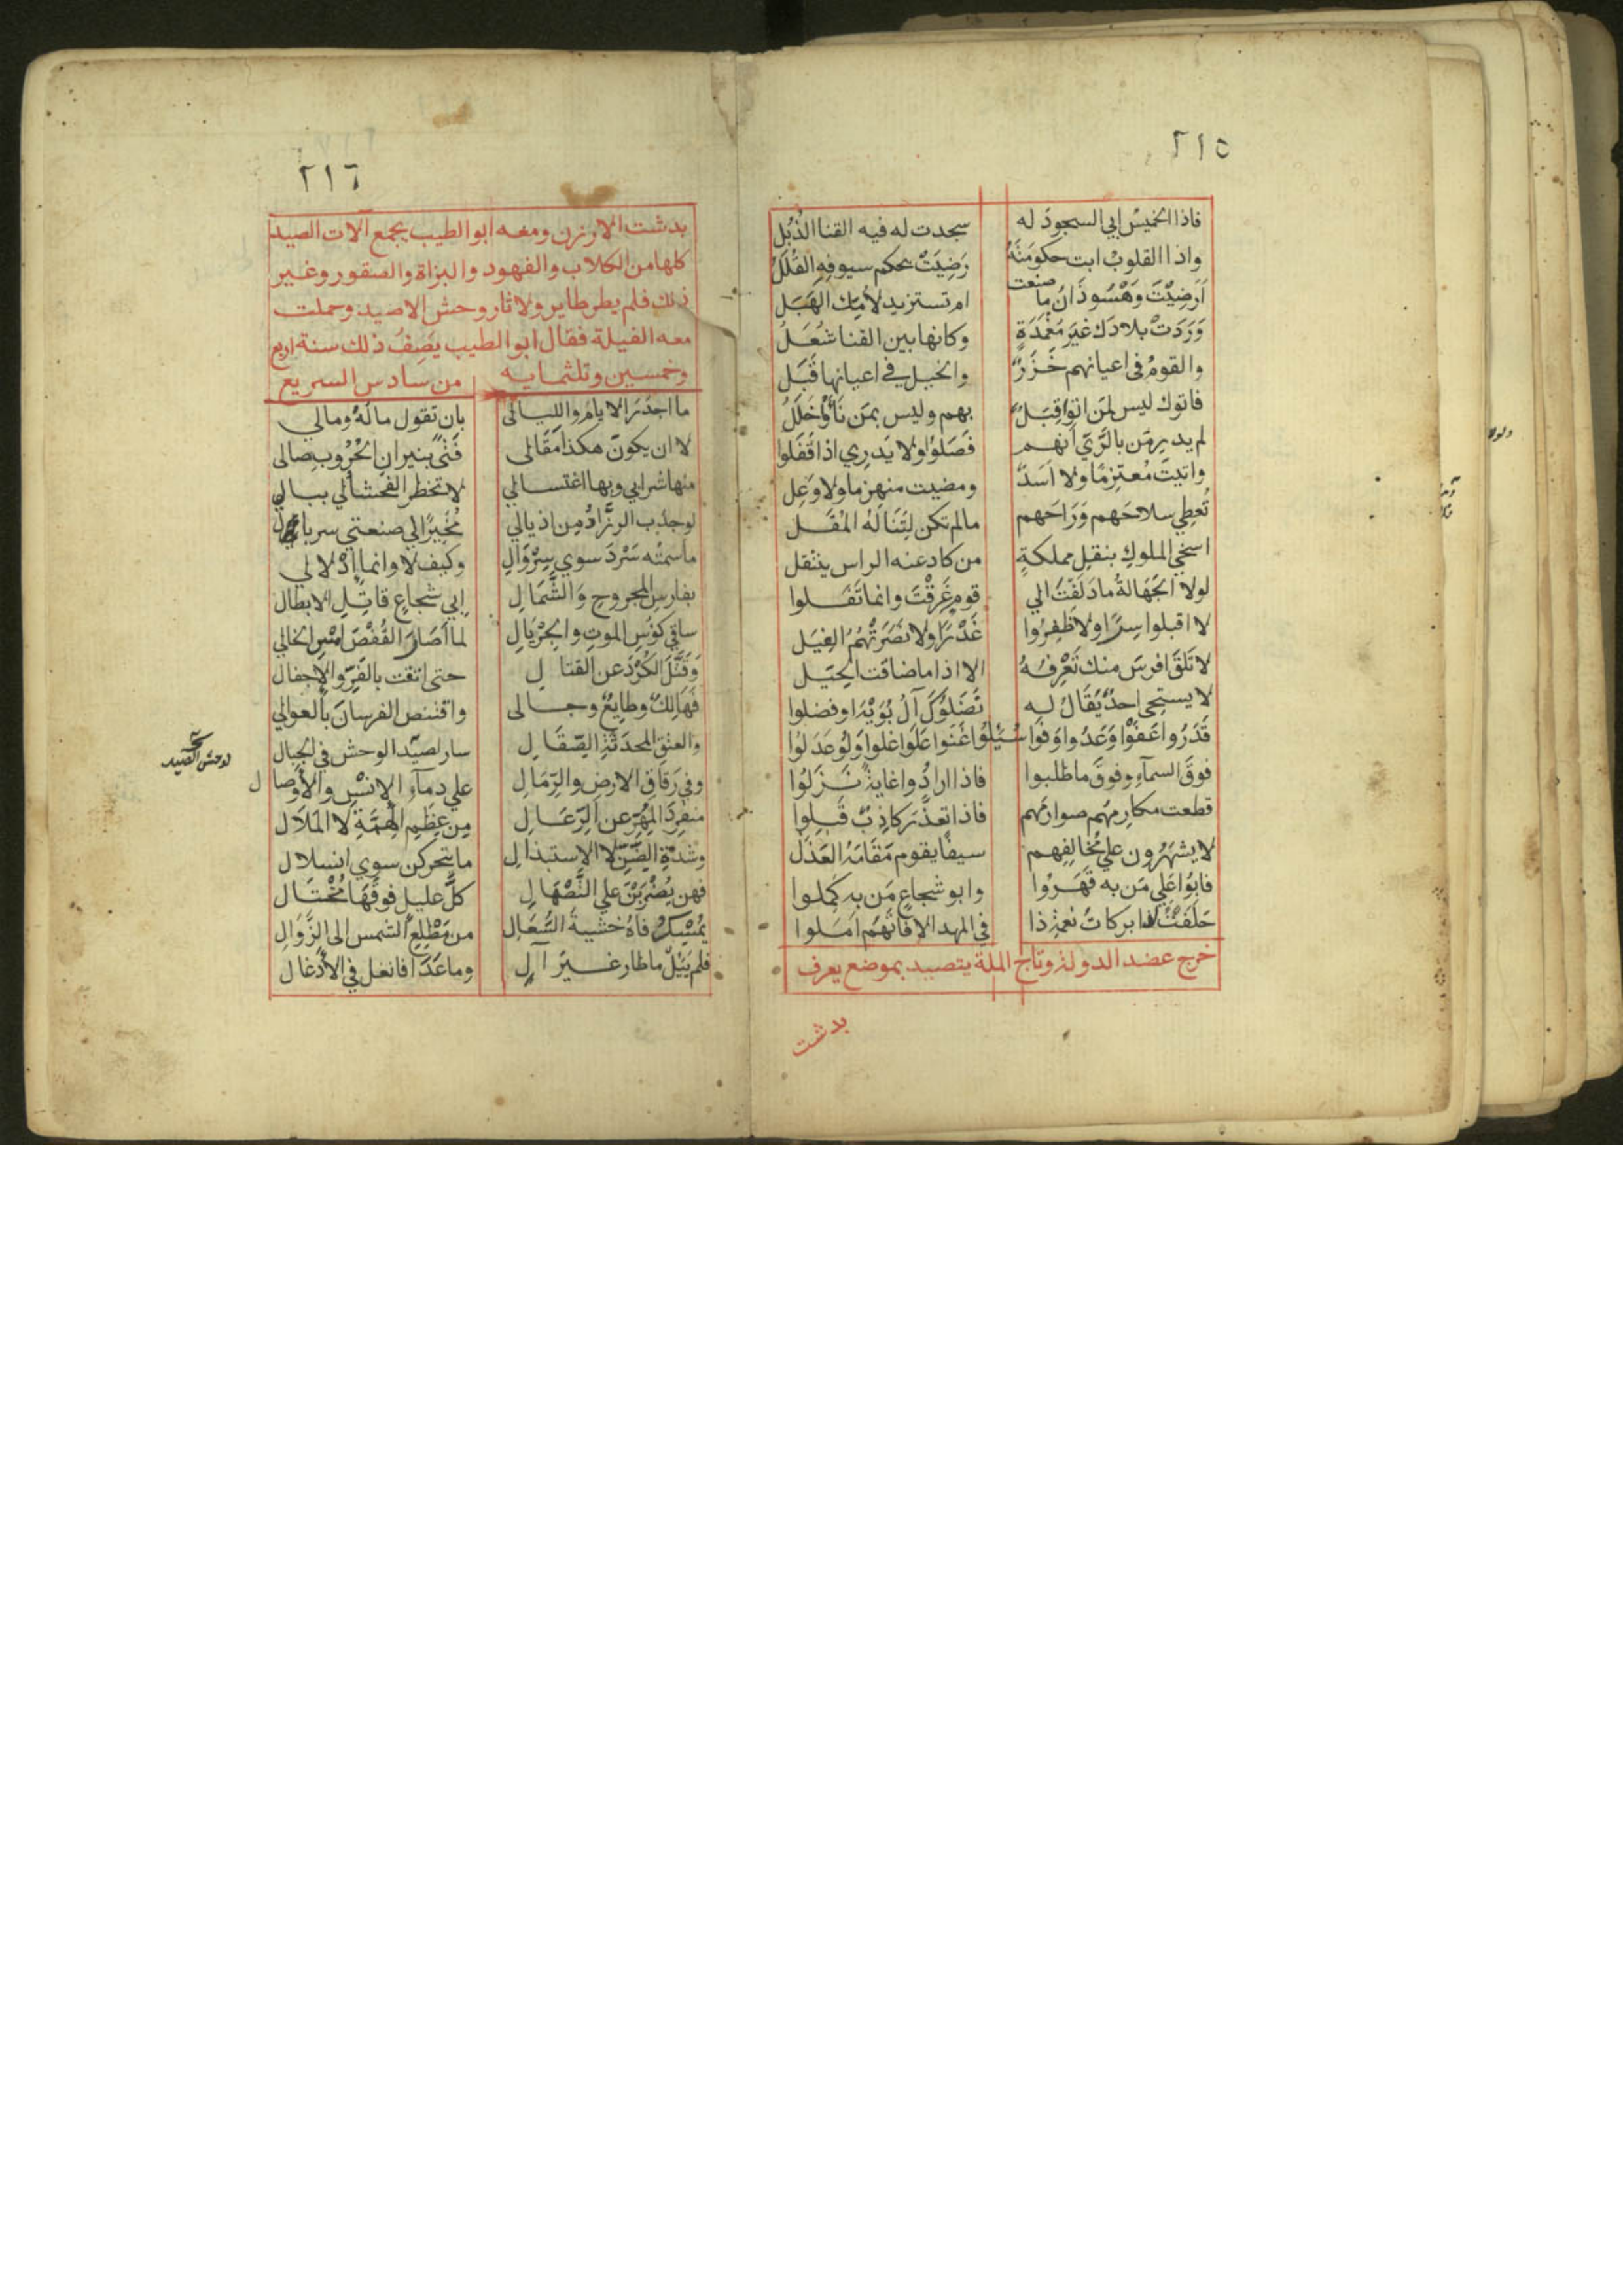 ٢١٥
فاذا الخميس ابي السجود له سجدت له فيه القنا الذُبُل
واذا القلوبُ ابت حكومَتَهُ رَضِيَتْ بحكم سيوفِهِ القُلَلُ
اَرَضِيْتَ وَهْسُوذَانُ ما صنعت ام تستزيد لأُمِك الهَبَل
وَرَدَتْ بلادَك غيرَ مُغْمَدَةٍ وكانها بين القنا شُعَلُ
والقومُ فى اعيانهم خَزَرٌ والخيل في اعيانها قَبَل
فاتوك ليس لمن اتوا قِبَلٌ بهم وليس بمَن نَأَوْا خَلَلُ
لم يدرِ مَن بالرَّيّ اَنهم فَصَلوُا ولا يَدرِي اذا قَفَلوا
واتيتَ مُعتزِمًا ولا اَسَدٌ ومضيت منهزما ولا وَعِل
تُعطِي سلاحَهم وَرَاحَهم مالم تكن لِتَنَالَهُ المُقَل
اسخي الملوكِ بنقلِ مملكةٍ من كاد عنه الراس ينتقل
لولا الجَهَالةُ ما دَلَفْتَ الي قومٍ غَرِقْتَ وانما تَفَلوا
لا اقبلوا سِرًا ولا ظَفِرُوا غَدْرًا ولا نَصَرَتْهُمُ الغِيَل
لا تَلقَ افرسَ منك تَعْرِفُهُ الا اذا ما ضاقت الحِيَل
لا يستحِى احدٌ يُقَالُ له نَضَلوُكَ آلُ بُوَيْه او فضلوا
قَدَرُوا عَفَوْا وَعَدُوا وَفَوا سُئِلوُا غَنَوا عَلَوا غلوا وَلُوا عَدَلوُا
فوقَ السمآءِ وفوقَ ما طلبوا فاذا ارادُوا غايةً نَزَلوُا
قطعت مكارِمهُم صوارمَهم فاذا تعذَّرَ كاذِبٌ قَبِلوا
لا يشهَرُون علي مُخالِفِهم سيفًا يقوم مَقَامَهُ العَذَل
فابُوا عَلِي مَن به قَهَرُوا وابو شجاعٍ مَن به كَملوا
حَلَفَتْ لذا بركاتُ نعمةِ ذا في المهد الا فاتَهُم اَمَلوا
خرج عضد الدولة وتاج الملة يتصيد بموضع يعرف
بدشت
٢١٦
بدشت الارزن ومعه ابو الطيب بجمع آلات الصيد
كلها من الكلاب والفهود والبزاة والصقور وغير
ذلك فلم يطر طاير ولا ثار وحش الا صيد وحملت
معه الفيلة فقال ابو الطيب يَصِفُ ذلك سنة اربع
وخمسين وثلثمايه من سادس السريع
ما اجدَرَ الايامُ والليالى بان تقول مالَهُ ومالي
لا ان يكونَ هكذا مَقَالى فَتًى بنيرانِ الحُرُوبِ صالى
منها شرابي وبها اغتسالي لا تخطر الفحشالي ببالِ
لو جذَب الزرَّادُ مِن اذيالي مُخَيِّرًا لي صنعتي سربالِ
ما سمتُه سَرْدَ سوي سِرْوَالِ وكيف لا وانما اِدْلالي
بفارسِ المجروحِ وَالشَّمَالِ ابي شجاعٍ قاتِلِ الابطال
ساقي كؤسِ الموتِ والجِرْيَالِ لما اَصَارَ القُفْصَ امسِ الخالي
وَقَتَّلَ الكُرْدَ عن القتالِ حتى اتقت بالفَرّ والاِجفالِ
فَهَالِكٌ وطايِعٌ وجالى واقتنص الفرسانَ بالعوالي
والعتقِ المحدَثَةِ الصِّقَالِ سار لصيد الوحش في الجبال
وفي رَقَاقِ الارضِ والرِّمَالِ علي دمآءِ الانسِ والاَوْصال
منفرِدَ المُهْرِ عن الرِّعَالِ مِن عِظَمِ الهِمَّةِ لا المَلاَل
وشدَّةِ الضِّنِّ لا الاِستبذالِ ما يتحركن سوي انسلال
فهن يُضْرَبْنَ علي التَّصْهَالِ كلُّ عليلٍ فوقَهَا مُخْتَال
يُمْسِكُ فاهُ خشيةَ السُّعَالِ من مَطْلِعِ الشمس الى الزَّوَالِ
فلم يَئِلّ ما طار غيرَ آلِ وما عَدَا فانغل في الاَدْغال
لوحش الصيد